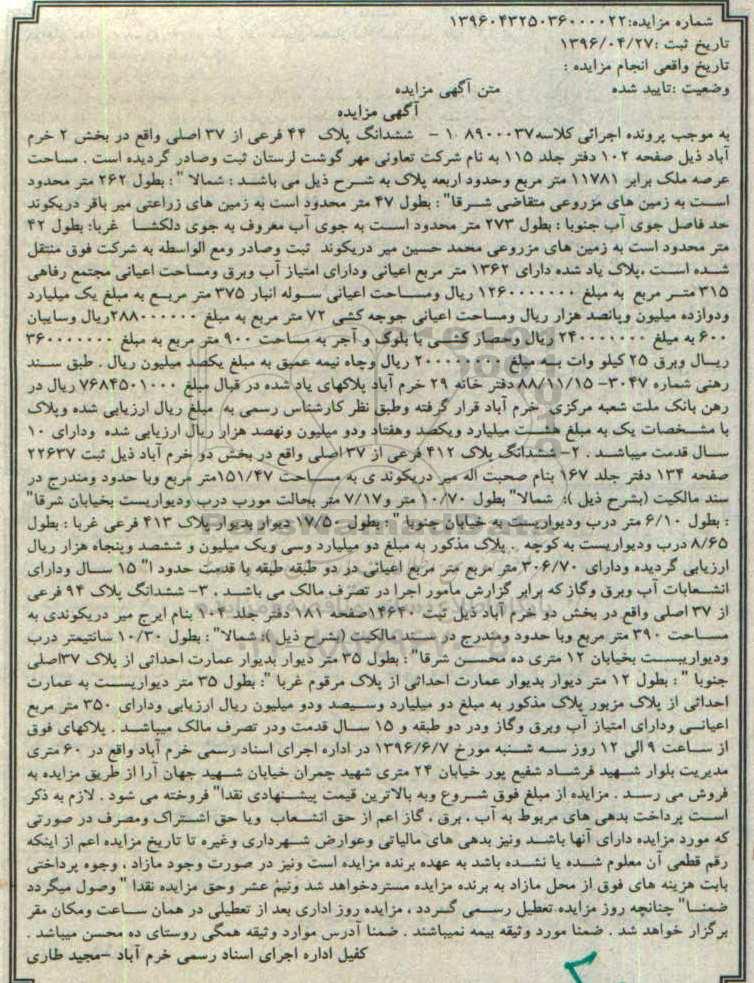 شماره مزایده:۱۳۹۶۰۴۳۲۵۰۳۶۰۰۰۰۲۲
تاریخ ثبت :۱۳۹۶/۰۴/۲۷
تاریخ واقعی انجام مزایده :
وضعیت :تایید شده متن آگهی مزایده
آگهی مزایده
به موجب پرونده اجرائی کلاسه۸۹۰۰۰۳۷ ۱۰ – ششدانگ پلاک ۴۴ فرعی از ۳۷ اصلی واقع در بخش ۲ خرم
آباد ذیل صفحه ۱۰۲ دفتر جلد ۱۱۵ به نام شرکت تعاونی مهر گوشت لرستان ثبت وصادر گردیده است . مساحت
عرصه ملک برابر ۱۱۷۸۱ متر مربع وحدود اربعه پلاک به شرح ذیل می باشد : شمالا " : بطول ۲۶۲ متر محدود
است به زمین های مزروعی متقاضی شرقا" : بطول ۴۷ متر محدود است به زمین های زراعتی میر باقر دریکوند
حد فاصل جوی آب جنوبا : بطول ۲۷۳ متر محدود است به جوی آب معروف به جوی دلکشا غربا: بطول ۴۲
متر محدود است به زمین های مزروعی محمد حسین میر دریکوند ثبت وصادر ومع الواسطه به شرکت فوق منتقل
شده است .پلاک یاد شده دارای ۱۳۶۲ متر مربع اعیانی ودارای امتیاز آب وبرق ومساحت اعیانی مجتمع رفاهی
۳۱۵ متر مربع به مبلغ ۱۲۶۰۰۰۰۰۰۰ ریال ومساحت اعیانی سوله انبار ۳۷۵ متر مربع به مبلغ یک میلیارد
ودوازده میلیون وپانصد هزار ریال ومساحت اعیانی جوجه کشی ۷۲ متر مربع به مبلغ ۲۸۸۰۰۰۰۰۰ریال وسایبان
۶۰۰ به مبلغ ۲۴۰۰۰۰۰۰۰ ریال وحصار کشی با بلوگ و آجر به مساحت ۹۰۰ متر مربع به مبلغ ۳۶۰۰۰۰۰۰۰
ریال وبرق ۲۵ کیلو وات به مبلغ ۲۰۰۰۰۰۰۰۰ ریال وچاه نیمه عمیق به مبلغ یکصد میلیون ریال . طبق سند
رهنی شماره ۳۰۴۷– ۸۸/۱۱/۱۵ دفتر خانه ۲۹ خرم آباد پلاکهای یاد شده در قبال مبلغ ۷۶۸۴۵۰۱۰۰۰ ریال در
رهن بانک ملت شعبه مرکزی خرم آباد قرار گرفته وطبق نظر کارشناس رسمی به مبلغ ریال ارزیابی شده وپلاک
با مشخصات یک به مبلغ هشت میلیارد ویکصد وهفتاد ودو میلیون ونهصد هزار ریال ارزیابی شده ودارای ۱۰
سال قدمت میباشد . ۲– ششدانگ پلاک ۴۱۲ فرعی از ۳۷ اصلی واقع در بخش دو خرم آباد ذیل ثبت ۲۲۶۳۷
صفحه ۱۳۴ دفتر جلد ۱۶۷ بنام صحبت اله میر دریکوند ی به مساحت ۱۵۱/۴۷متر مربع وبا حدود ومندرج در
سند مالکیت (بشرح ذیل ): شمالا" بطول ۱۰/۷۰ متر و۷/۱۷ متر بحالت مورب درب ودیواریست بخیابان شرقا"
: بطول ۶/۱۰ متر درب ودیواریست به خیابان جنوبا " : بطول ۱۷/۵۰ دیوار بدیوار پلاک ۴۱۳ فرعی غربا : بطول
۸/۶۵ درب ودیواریست به کوچه . پلاک مذکور به مبلغ دو میلیارد وسی ویک میلیون و ششصد وپنجاه هزار ریال
ارزیابی گردیده ودارای ۳۰۶/۷۰ متر مربع متر مربع اعیانی در دو طبقه طبقه با قدمت حدود ا" ۱۵ سال ودارای
انشعابات آب وبرق وگاز که برابر گزارش مامور اجرا در تصرف مالک می باشد . ۳– ششدانگ پلاک ۹۴ فرعی
از ۳۷ اصلی واقع در بخش دو خرم آباد ذیل ثبت ۱۴۶۴۰صفحه ۱۸۱ دفتر جلد ۱۰۴ بنام ایرج میر دریکوندی به
مساحت ۳۹۰ متر مربع وبا حدود ومندرج در سند مالکیت (بشرح ذیل ): شمالا" : بطول ۱۰/۳۰ سانتیمتر درب
ودیواریست بخیابان ۱۲ متری ده محسن شرقا" : بطول ۳۵ متر دیوار بدیوار عمارت احداثی از پلاک ۳۷اصلی
جنوبا " : بطول ۱۲ متر دیوار بدیوار عمارت احداثی از پلاک مرقوم غربا ": بطول ۳۵ متر دیواریست به عمارت
احداثی از پلاک مزبور پلاک مذکور به مبلغ دو میلیارد وسیصد ودو میلیون ریال ارزیابی ودارای ۳۵۰ متر مربع
اعیانی ودارای امتیاز آب وبرق وگاز ودر دو طبقه و ۱۵ سال قدمت ودر تصرف مالک میباشد . پلاکهای فوق
از ساعت ۹ الی ۱۲ روز سه شنبه مورخ ۱۳۹۶/۶/۷ در اداره اجرای اسناد رسمی خرم آباد واقع در ۶۰ متری
مدیریت بلوار شهید فرشاد شفیع پور خیابان ۲۴ متری شهید چمران خیابان شهید جهان آرا از طریق مزایده به
فروش می رسد . مزایده از مبلغ فوق شروع وبه بالاترین قیمت پیشنهادی نقدا" فروخته می شود . لازم به ذکر
است پرداخت بدهی های مربوط به آب ، برق ، گاز اعم از حق انشعاب ویا حق اشتراک ومصرف در صورتی
که مورد مزایده دارای آنها باشد ونیز بدهی های مالیاتی وعوارض شهرداری وغیره تا تاریخ مزایده اعم از اینکه
رقم قطعی آن معلوم شده یا نشده باشد به عهده برنده مزایده است ونیز در صورت وجود مازاد ، وجوه پرداختی
بابت هزینه های فوق از محل مازاد به برنده مزایده مستردخواهد شد ونیم عشر وحق مزایده نقدا " وصول میگردد
ضمنا" چنانچه روز مزایده تعطیل رسمی گردد ، مزایده روز اداری بعد از تعطیلی در همان ساعت ومکان مقر
برگزار خواهد شد . ضمنا مورد وثیقه بیمه نمیباشند . ضمنا آدرس موارد وثیقه همگی روستای ده محسن میباشد .
کفیل اداره اجرای اسناد رسمی خرم آباد –مجید طاری